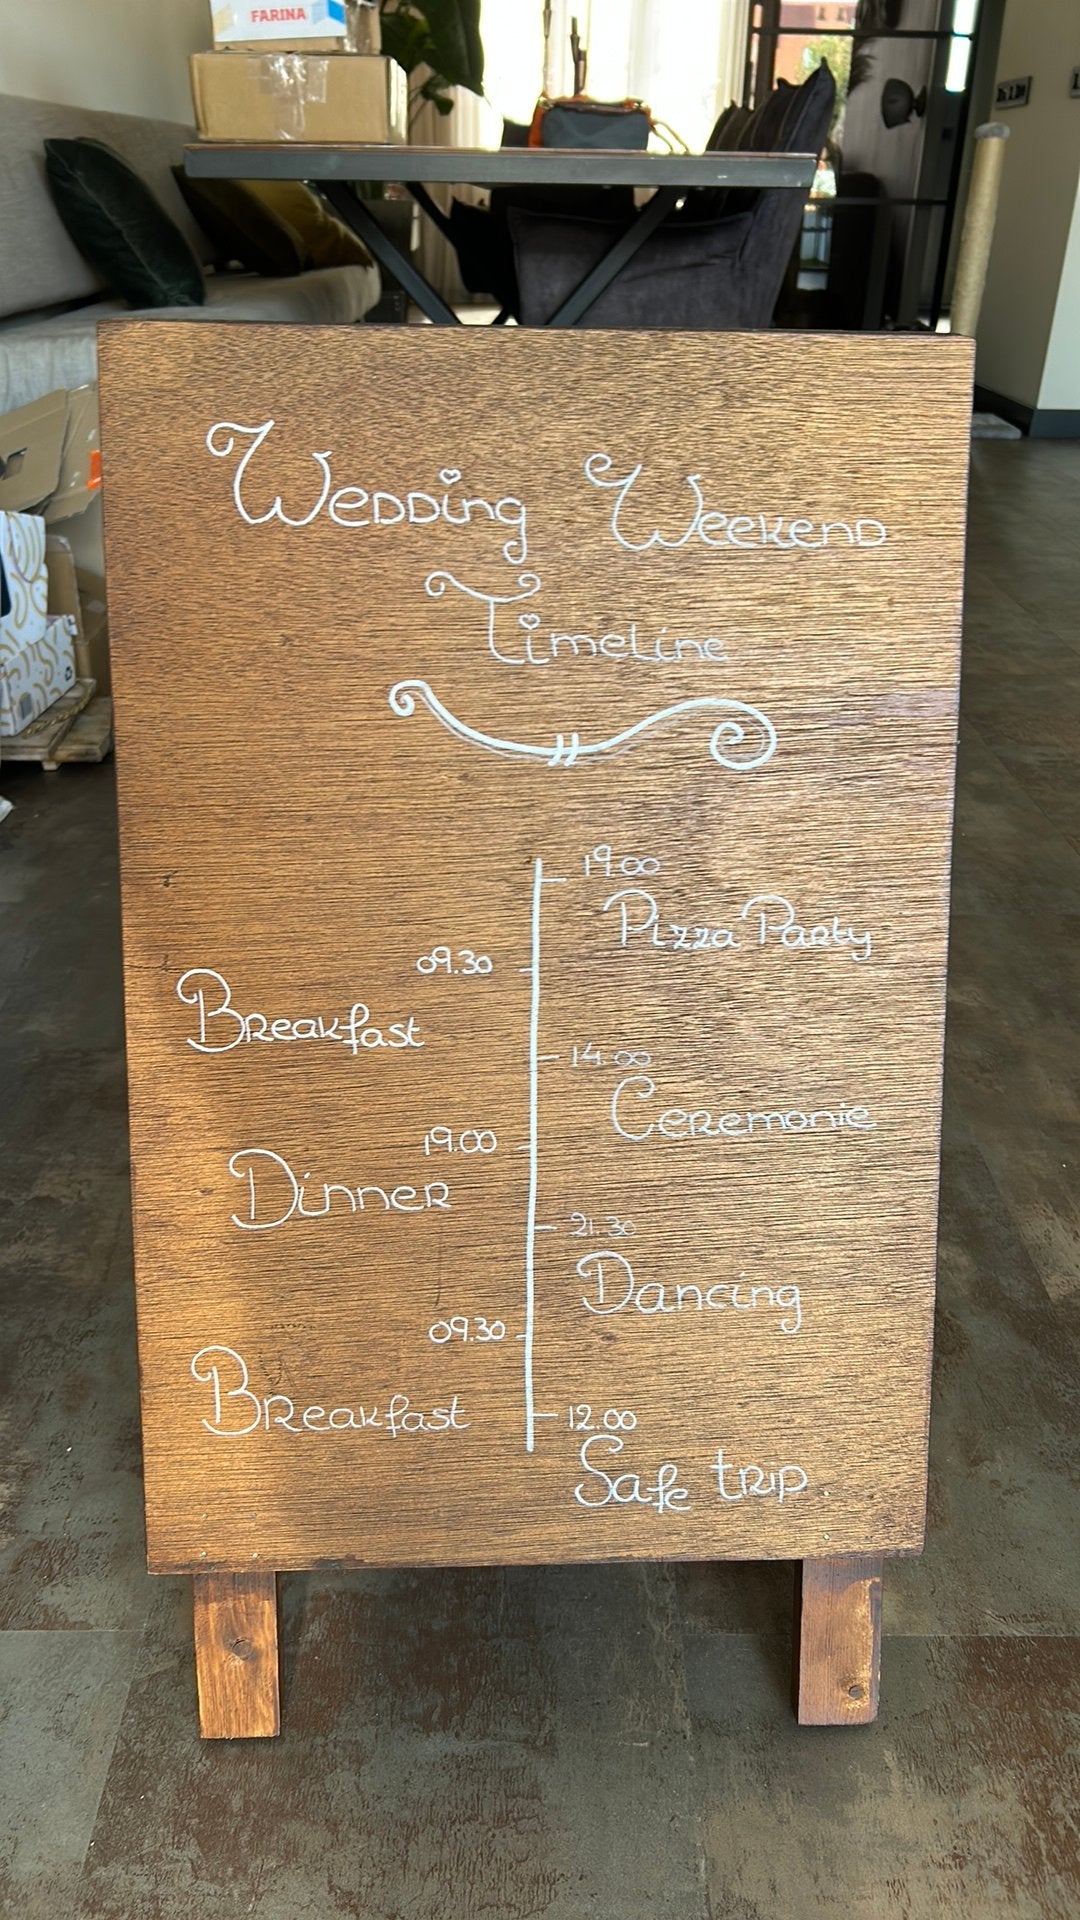 FARINA
Wedding Weekend
Timeline
19.00
Pizza Party
09.30
Breakfast
14.00
Ceremonie
19.00
Dinner
21.30
Dancing
09.30
Breakfast
12.00
Safe trip